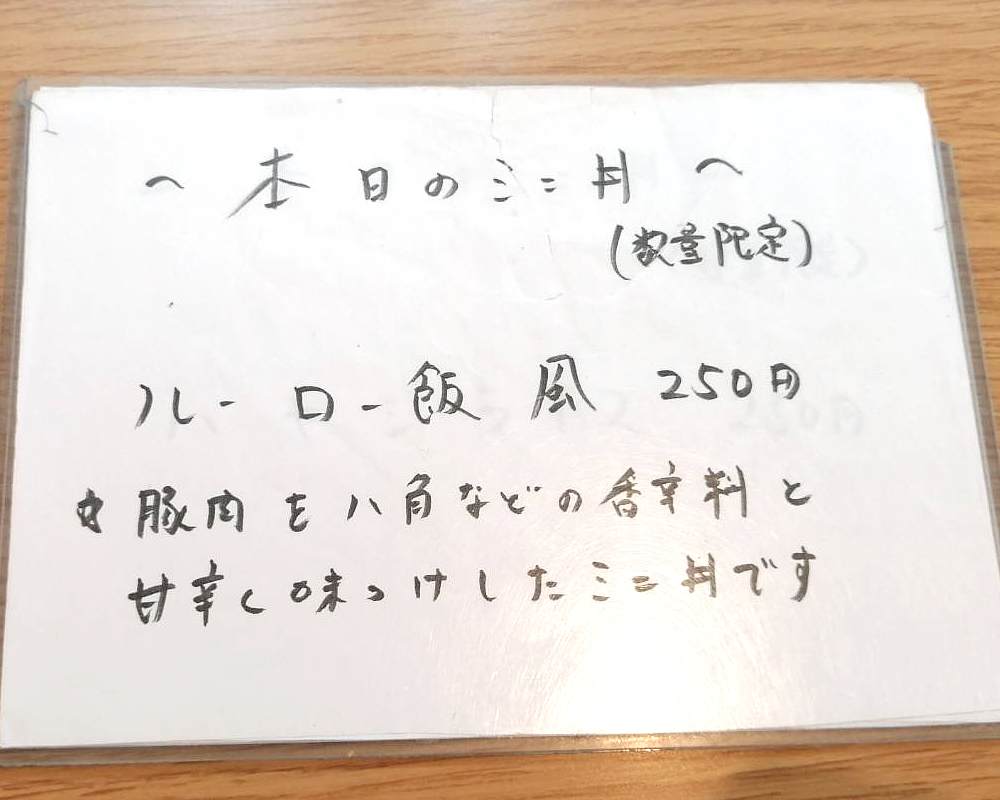 ～本日のミニ丼～
(数量限定)
ルーロー飯風 250円
☆豚肉を八角などの香辛料と
甘辛く味つけしたミニ丼です